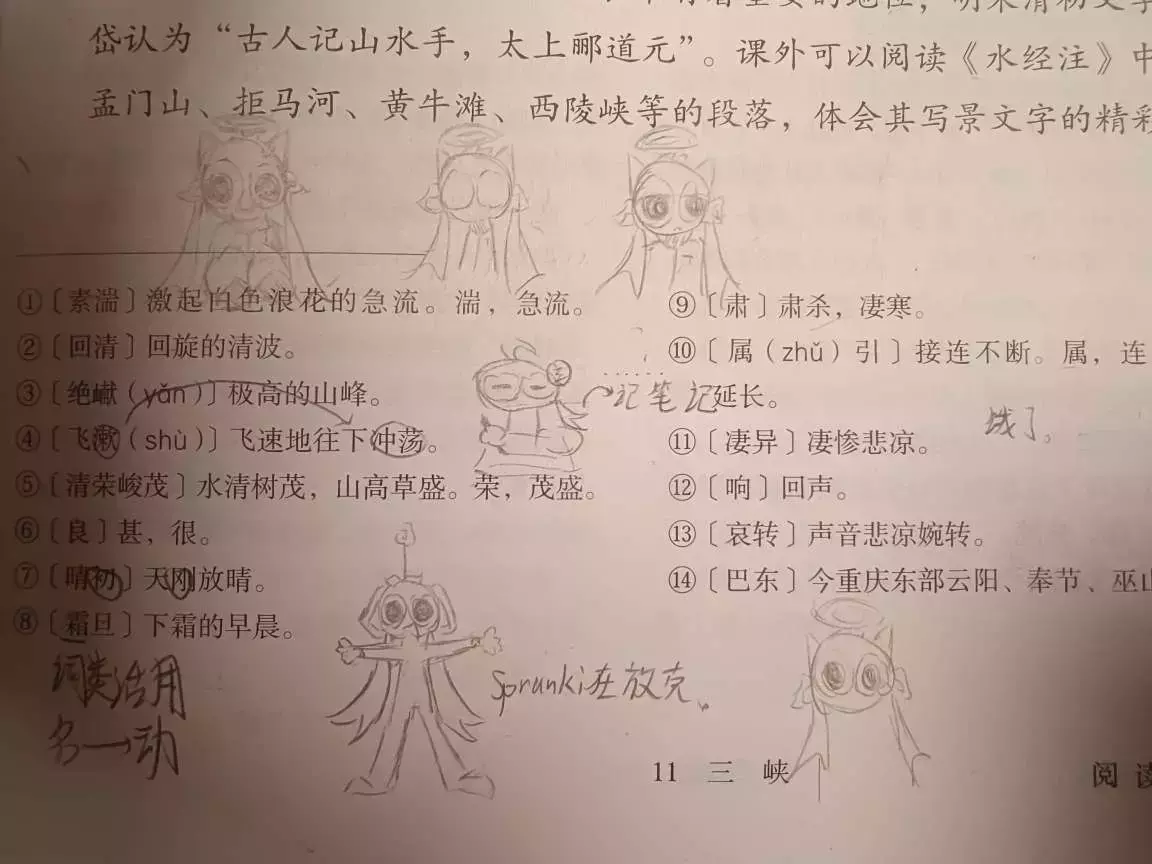 岱认为“古人记山水手，太上郦道元”。课外可以阅读《水经注》中
孟门山、拒马河、黄牛滩、西陵峡等的段落，体会其写景文字的精彩
①〔素湍〕激起白色浪花的急流。湍，急流。
②〔回清〕回旋的清波。
③〔绝巘（yǎn）〕极高的山峰。
④〔飞漱（shù）〕飞速地往下冲荡。
⑤〔清荣峻茂〕水清树茂，山高草盛。荣，茂盛。
⑥〔良〕甚，很。
⑦〔晴初〕天刚放晴。
⑧〔霜旦〕下霜的早晨。
词类活用
名→动
记笔记
Sprunki在放克。
⑨〔肃〕肃杀，凄寒。
⑩〔属（zhǔ）引〕接连不断。属，连
延长。
饿了。
⑪〔凄异〕凄惨悲凉。
⑫〔响〕回声。
⑬〔哀转〕声音悲凉婉转。
⑭〔巴东〕今重庆东部云阳、奉节、巫山
11 三 峡
阅 读